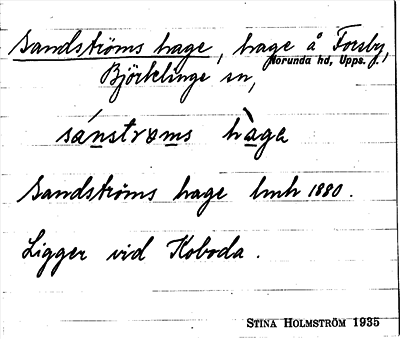 Sandströms hage, hage å Forsby,
Norunda hd, Upps. l.
Björklinge sn,
sánstrɷms hàga
Sandströms hage lmh 1880.
Ligger vid Koboda.
STINA HOLMSTRÖM 1935